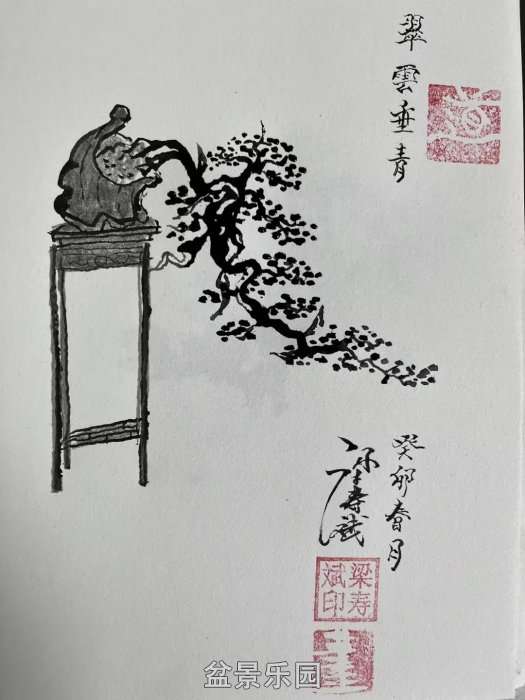 翠雲垂青
癸卯春月
梁寿斌
梁寿
斌印
盆景乐园